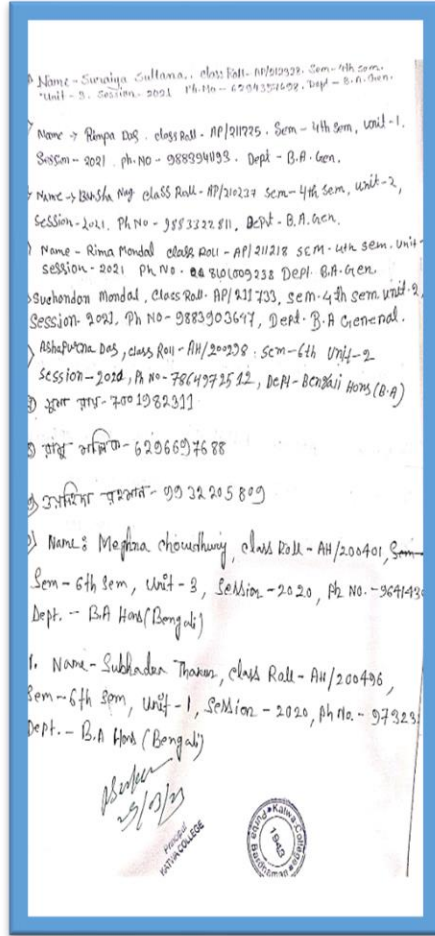 Name - Suraiya Sultana, class Roll - AP/212328. Sem - 4th sem.
Unit - 3. Session - 2021 Ph. No - 6294352698, Dept - B.A. Gen.
Name → Rimpa Das. class Roll - AP/211225. Sem - 4th Sem, Unit - 1,
Session - 2021. ph. NO - Dept - B.A. Gen.
Name → Barsha Nag class Roll - AP/210237 Sem - 4th Sem, Unit - 2,
Session - 2021. Ph No - 9883322811, Dept - B.A. Gen.
Name - Rima Mondal class Roll - AP/211218 SEM - 4th sem. Unit -
session - 2021 Ph No. 8101009238 Dept. B.A - Gen
Suchondon Mondal, Class Roll. AP/211733, Sem. 4th sem. Unit - 2,
Session - 2021, Ph No - 9883903647, Dept. B.A General.
Ashapurna Das, class Roll - AH/200298. Sem - 6th Unit - 2
Session - 2020, Ph No - 7864972512, Dept - Bengali Hons (B.A)
রায় - 7001982311
মল্লিক - 6296697688
রহমান - 9932205809
Name: Meghna Choudhury, class Roll - AH/200401,
Sem - 6th Sem, Unit - 3, Session - 2020, Ph No. - 964143
Dept. - B.A Hons (Bengali)
1. Name - Subhadra Thakur, class Roll - AH/200496,
Sem - 6th Sem, Unit - 1, Session - 2020, Ph No. - 97323
Dept. - B.A Hons (Bengali)
Principal
KATWA COLLEGE
Katwa College
Purba Bardhaman
1948